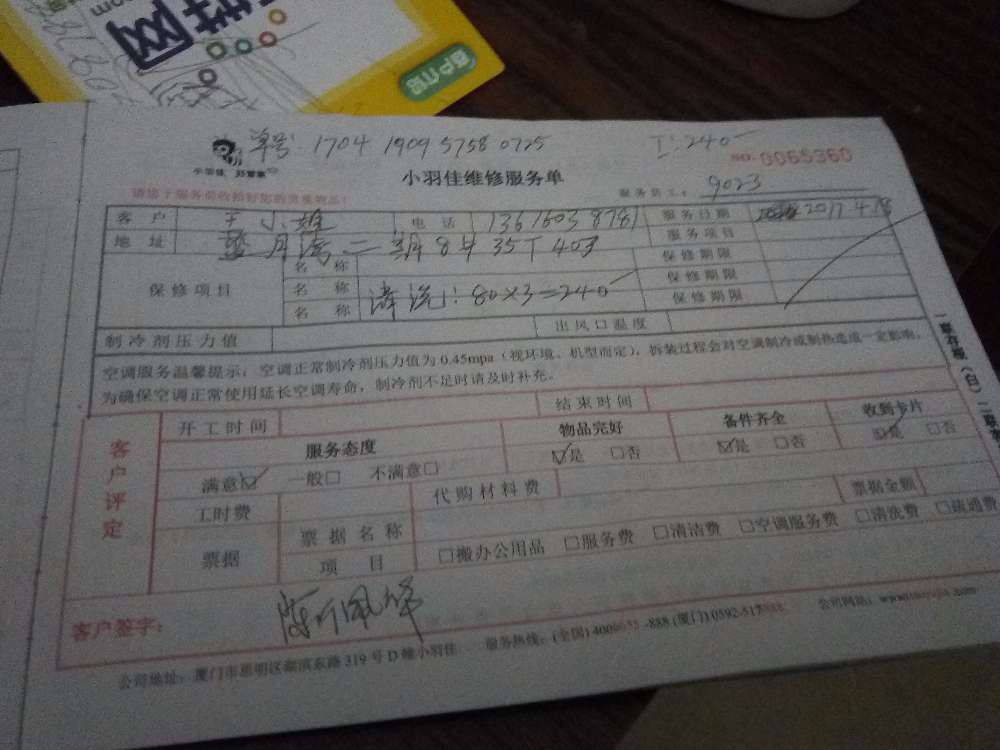 单号: 1704 1909 5758 0725
工: 240
小羽佳 好管家
NO: 0065360
小羽佳维修服务单
服务员工: 9023
客户 王小姐 电话 13616038781 服务日期 2017 4.18
地址 蓝月湾二期8# 35T 403 服务项目
保修项目 名称 保修期限
名称 清洗: 80×3=240 保修期限
名称 保修期限
制冷剂压力值 出风口温度
空调服务温馨提示: 空调正常制冷剂压力值为0.45mpa(视环境、机型而定), 拆装过程会对空调制冷或制热造成一定影响。
为确保空调正常使用延长空调寿命, 制冷剂不足时请及时补充。
客户评定 开工时间 结束时间
服务态度 物品完好 备件齐全 收到卡片
满意☑ 一般□ 不满意□ ☑是 □否 ☑是 □否 ☑是 □否
工时费 代购材料费 票据金额
票据 票据名称
项目 □搬办公用品 □服务费 □清洁费 □空调服务费 □清洗费 □疏通费
客户签字:
公司地址: 厦门市思明区湖滨东路319号D幢小羽佳 服务热线: (全国) 400 -888 (厦门) 0592- 公司网站:
一联存根(白) 二联